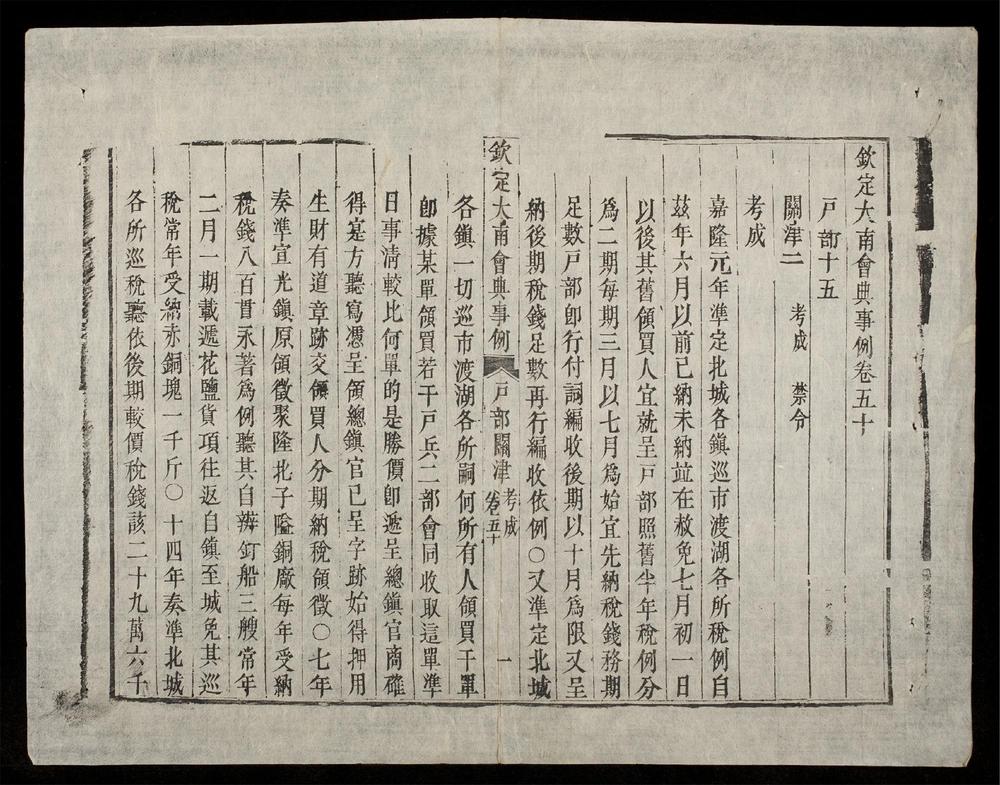 欽定大南會典事例卷五十
戸部十五
關津二 考成 禁令
考成
嘉隆元年準定北城各鎮巡市渡湖各所稅例自
玆年六月以前已納未納並在赦免七月初一日
以後其舊領買人宜就呈戸部照舊半年稅例分
爲二期每期三月以七月爲始宜先納稅錢務期
足數戸部卽行付詞編收後期以十月爲限又呈
納後期稅錢足數再行編收依例〇又準定北城
欽定大南會典事例 戸部關津考成 卷五十 一
各鎮一切巡市渡湖各所嗣何所有人領買干單
卽據某單領買若干戸兵二部會同收取這單準
日事清較比何單的是勝價卽遞呈總鎮官商確
得寔方聽寫憑呈領總鎮官已呈字跡始得押用
生財有道章跡交領買人分期納稅領徵〇七年
奏準宣光鎮原領徵聚隆北子隘銅廠每年受納
稅錢八百貫永著爲例聽其自辨釘船三艘常年
二月一期載遞花鹽貨項往返自鎮至城免其巡
稅常年受納赤銅塊一千斤〇十四年奏準北城
各所巡稅聽依後期較價稅錢該二十九萬六千